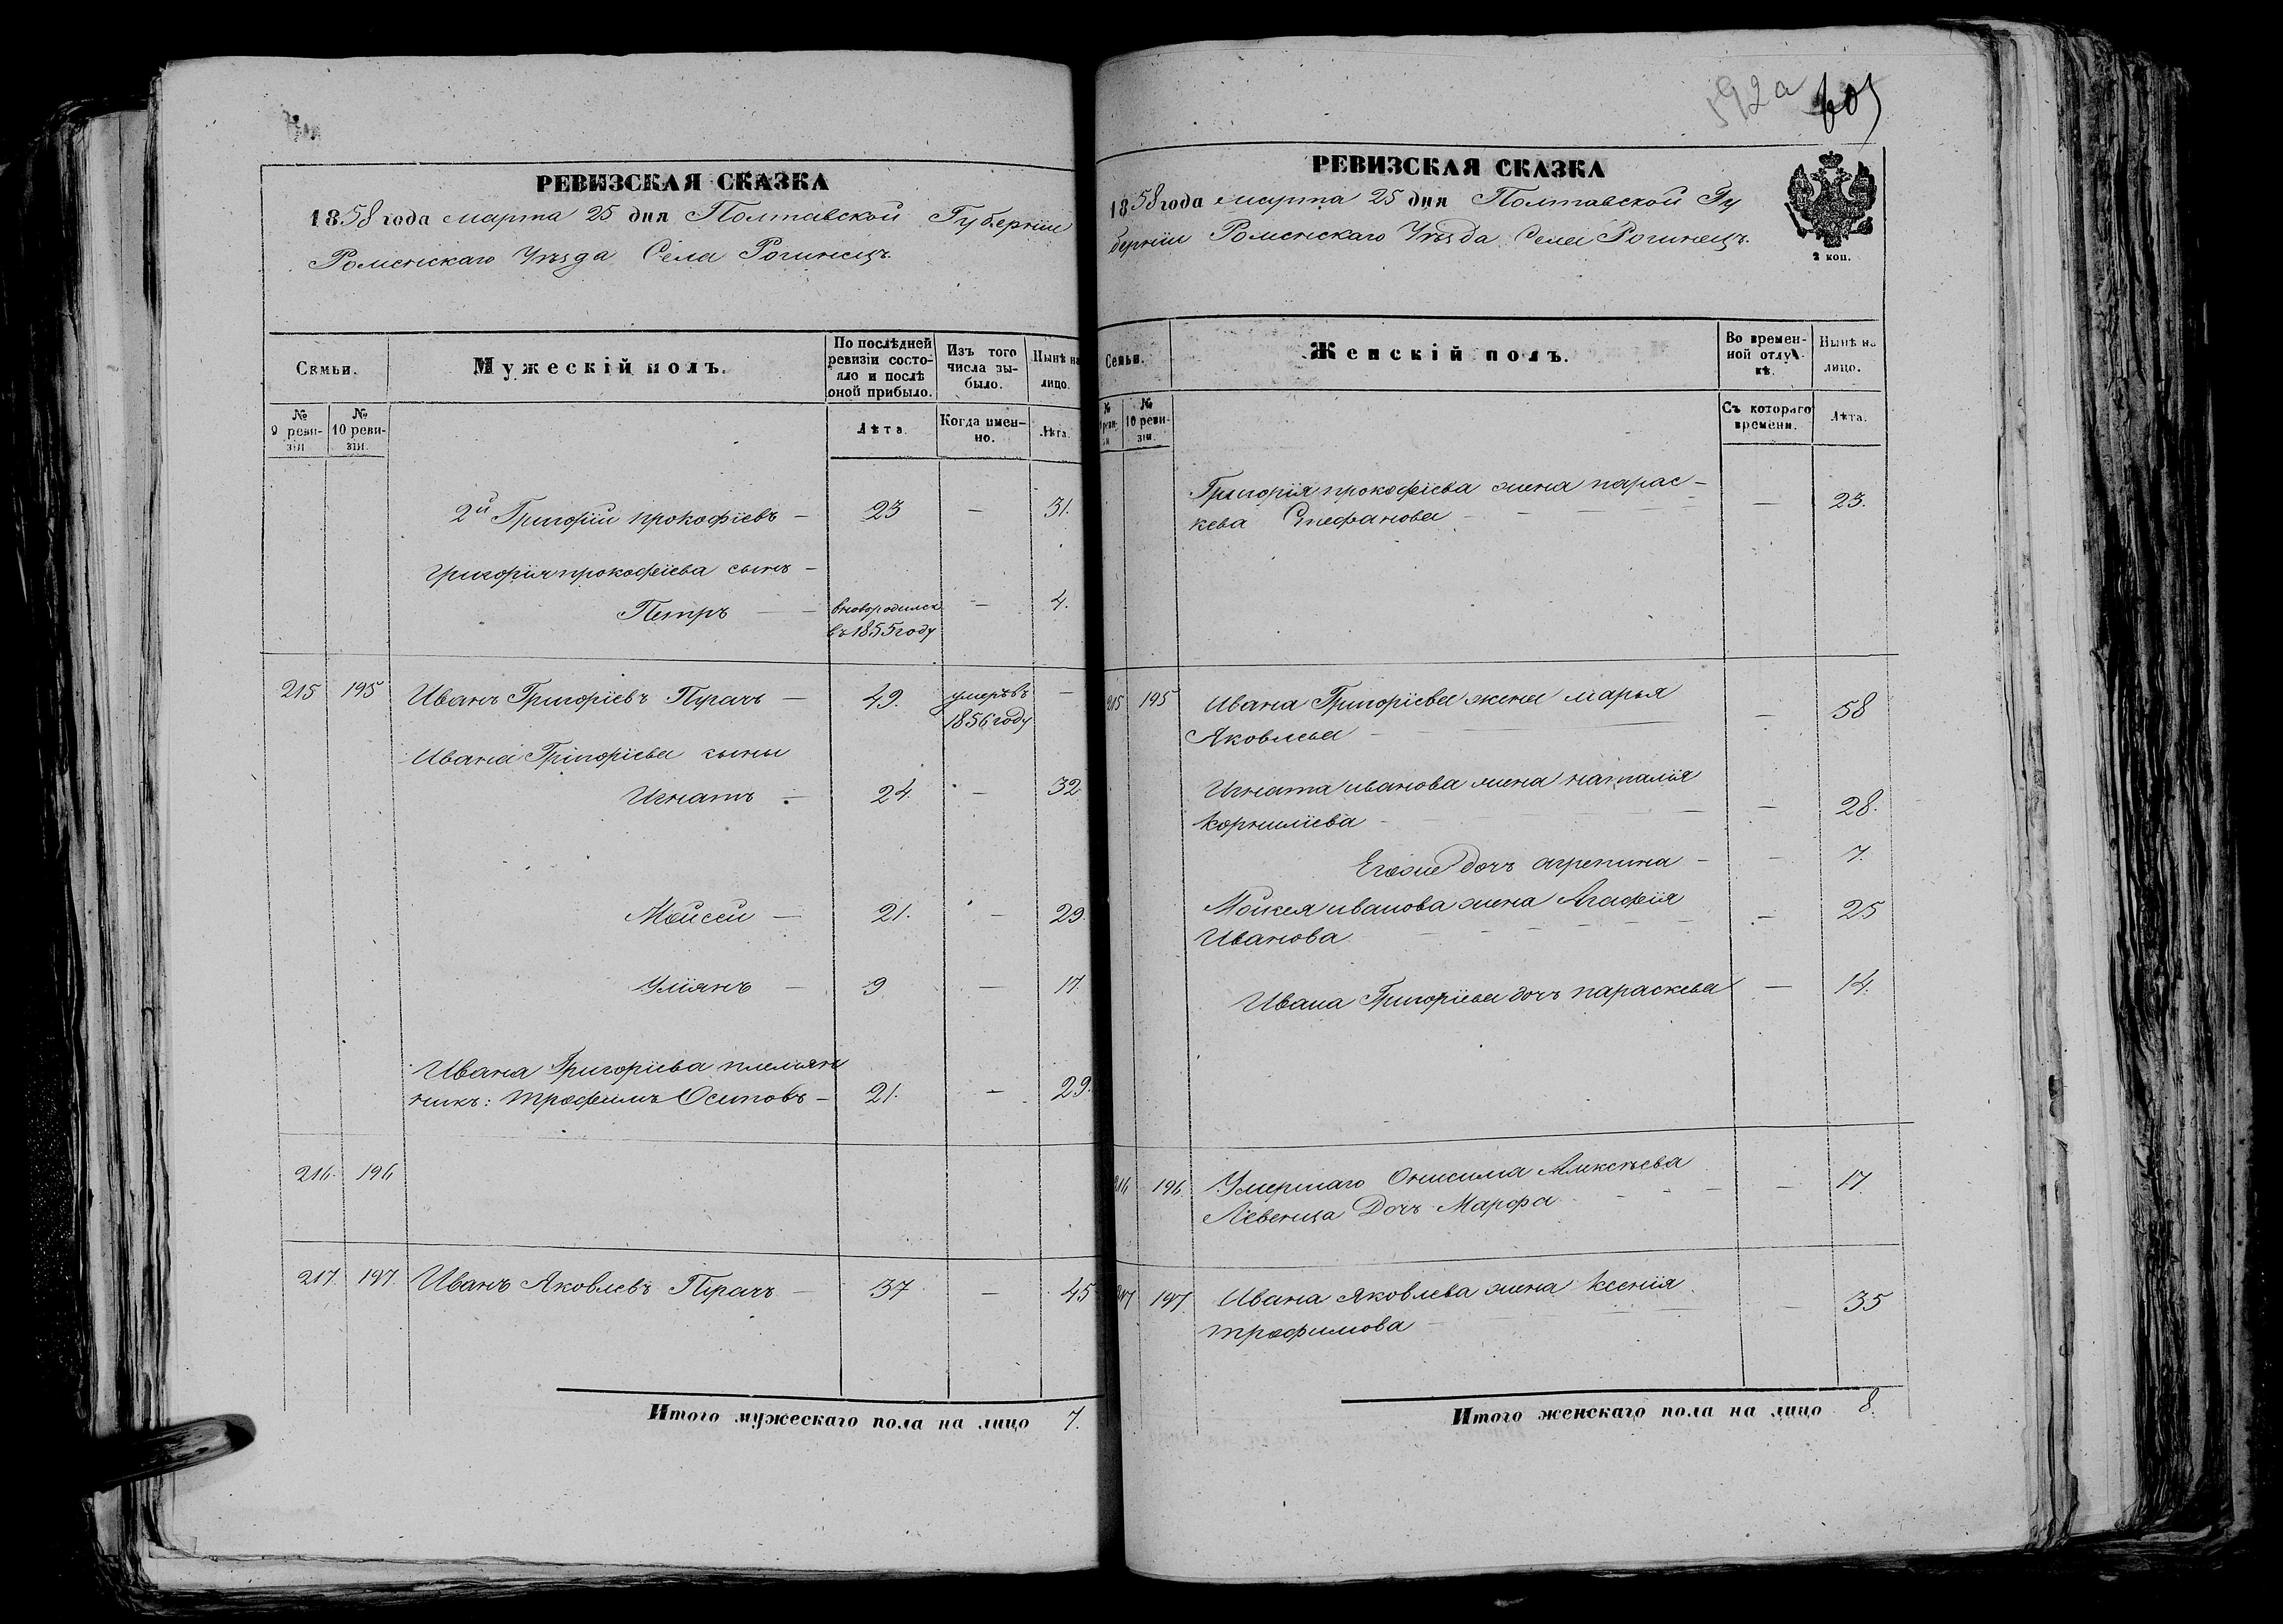 РЕВИЗСКАЯ СКАЗКА
1858 года марта 25 дня Полтавской Губерніи
Роменскаго Уѣзда Села Рогинецъ.
Семьи.
Мужескій полъ.
По послѣдней ревизіи состояло и послѣ оной прибыло.
Изъ того числа выбыло.
Нынѣ на лицо.
№ 9 ревизіи
№ 10 ревизіи.
Лѣта.
Когда именно.
Лѣта.
2й Григорій прокофіевъ — 23 — 31.
Григорія прокофіева сынъ —
Петръ — вновородился — 4.
въ 1855 году
215 195 Иванъ Григоріевъ Пугачъ — 49. умеръ въ —
1856 году
Ивана Григоріева сыны
Игнатъ — 24. — 32
Мойсей — 21. — 29.
Улiянъ — 9 — 17
Ивана Григоріева племян
никъ: трофимъ Осиповъ — 21. — 29.
216. 196
217. 197. Иванъ Яковлевъ — 37 — 45
Итого мужескаго пола на лицо 7.
592а 605
РЕВИЗСКАЯ СКАЗКА
1858 года марта 25 дня Полтавской Гу
берніи Роменскаго Уѣзда Села Рогинецъ.
2 коп.
Семьи.
Женскій полъ.
Во временной отлучкѣ.
Нынѣ на лицо.
№ 9 ревизіи
№ 10 ревизіи.
Съ котораго времени.
Лѣта.
Григорія прокофіева жена парас-
кева Стефанова — 23.
215 195 Ивана Григоріева жена марья
Яковлева — 58
Игната иванова жена наталія
Корниліева — 28.
Егоже дочь агрепина — 7.
Мойсея иванова жена Агафія
Иванова — 25
Ивана Григоріева дочь параскева — 14.
216 196. Умершаго Онисима Алексѣева — 17.
Левенца Дочь Марфа
217 197 Ивана Яковлева жена Ксенія
трофимова — 35
Итого женскаго пола на лицо 8.